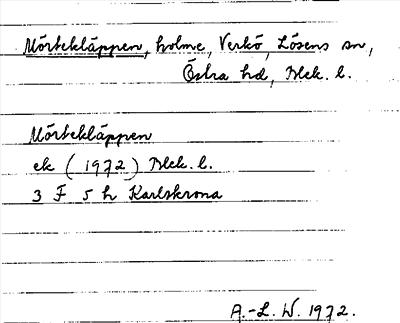 Mörtekläppen, holme, Verkö, Lösens sn,
Östra hd, Blek. l.
Mörtekläppen
ek (1972) Blek. l.
3 F 5 h Karlskrona
A.-L. W. 1972.